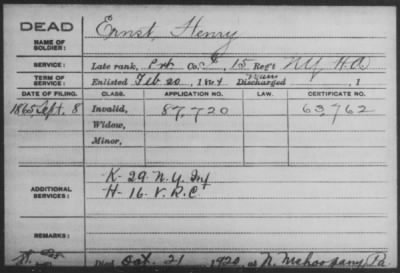 DEAD
NAME OF SOLDIER:
Ernst, Henry
SERVICE:
Late rank, Prt Co. 15 Reg't N.Y. H.A
TERM OF SERVICE:
Enlisted Feb. 20, 1864 Discharged , 1
DATE OF FILING. CLASS. APPLICATION NO. LAW. CERTIFICATE NO.
1865 Sept. 8 Invalid, 87,720 63,762
Widow,
Minor,
ADDITIONAL SERVICES:
K- 29 N.Y. Inf
H- 16 V.R.C
REMARKS:
Died Oct. 21 1920, at N. Mehoopany, Pa